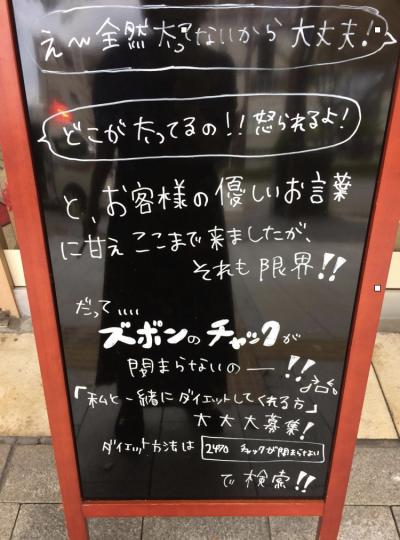 え〜全然太ってないから大丈夫!
どこが太ってるの!!怒られるよ!
と、お客様の優しいお言葉
に甘えここまで来ましたが、
それも限界!!
だって、、、、
ズボンのチャックが
閉まらないのー!!
「私と一緒にダイエットしてくれる方」
大大大募集!
ダイエット方法は
チャックが閉まらない
で検索!!